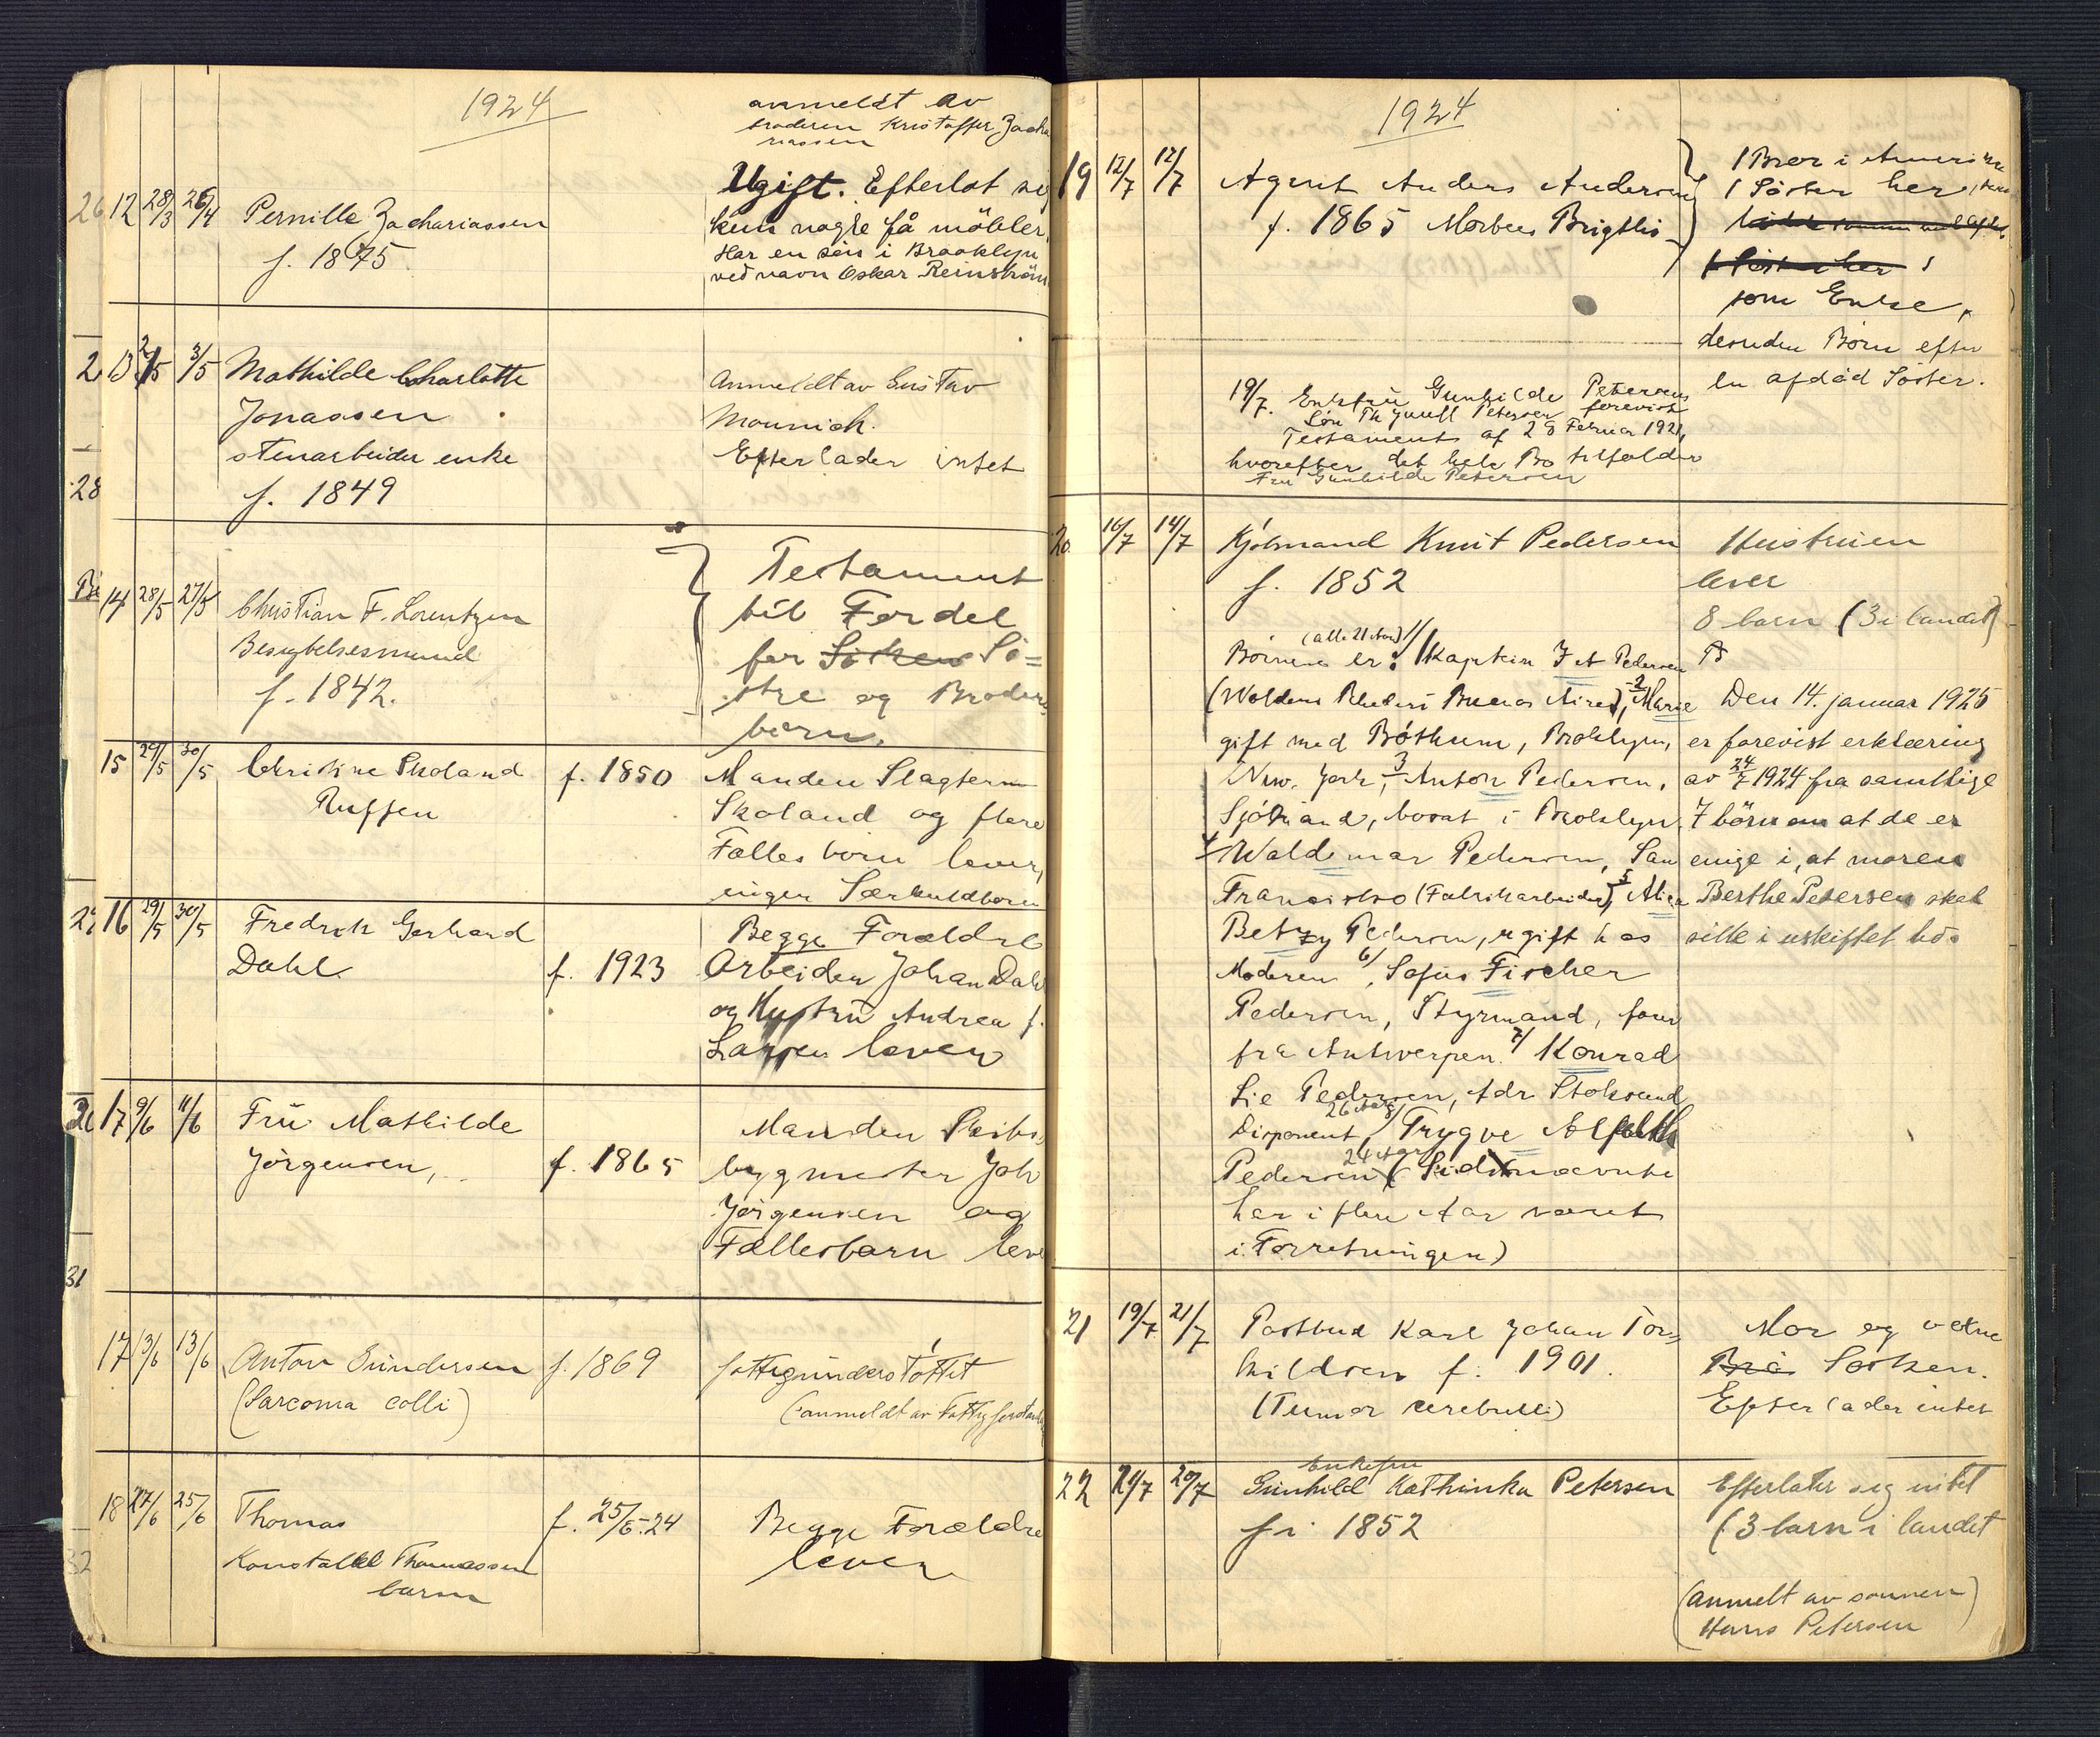 1924
anmeldt av
broderen Kristoffer Zacha
riassen
26 12 28/3 26/4 Pernille Zachariassen
f. 1875
Ugift. Efterlot sig
kun nogle få möbler.
Har en sön i Brooklyn
ved navn Oskar Reinström
2 13 2/5 3/5 Mathilde Charlotte
Jonassen
stenarbeider enke
f. 1849
Anmeldt av Gustav
Mounich.
Efterlader intet
28
14 28/5 27/5 Christian F. Lorentzen
Bestyrelsesmand
f. 1842.
Testament
til Fordel
for Sö=
stre og Broders
börn.
15 29/5 30/5 Christine Skoland
Ruffen
f. 1850
Manden Slagterm
Skoland og flere
Fælles börn lever,
ingen Særkuldbörn
16 29/5 30/5 Fredrik Gerhard
Dahl
f. 1923
Begge Forældre
Arbeider Johan Dahl
og Hustru Andrea f.
Larsen lever
17 9/6 11/6 Frü Mathilde
Jörgensen,
f. 1865
Manden Skibs
bygmester Joh
Jörgensen og
Fællesbarn leve
31
17 13/6 13/6 Anton Gundersen
(Sarcoma colli)
f. 1869
fattigunderstöttet
(anmeldt av Fattigforstand
18 27/6 25/6 Thomas
Konstabel Thomassen
barn
f. 25/6.24
Begge Forældre
lever
32
1924
19 12/7 12/7 Agent Anders Andersen
f. 1865 Morbus Brigthii
1 Bror i Amerika
1 Söster her
som Enke,
desuden Börn efter
en afdöd Söster.
19/7. Enkefru Gunhilde Petersens
Sön Th Juull Petersen forevist
Testament af 28 Februar 1921,
hvorefter det hele Bo tilfalder
Fru Gunhilde Petersen
20 16/7 14/7 Kjöbmand Knut Pedersen
f. 1852
Hustruen
lever
8 barn (3 i landet)
(alle 21 Aar)
Börnene er: 1/ Kaptein Pedersen
(Woldens Rhederi Buenos Aires), 2 Marie
gift med Böthum, Brooklyn,
New. York, 3 Anton Pedersen,
Sjömand, bosat i Brooklyn
4 Waldemar Pedersen, San
Francisko (Fabrikarbeider), 5 Alica
Betzy Pedersen, ugift hos
Moderen 6/, Sofus Fischer
Pedersen, Styrmand, farer
fra Antwerpen. 7/ Konrad
Lie Pedersen, Adr Stoksund
26 Aar
Disponent, 8/ Trygve
24 Aar
Pedersen (Sidstnævnte
har i flere Aar været
i Forretningen)
Den 14. januar 1925
er forevist erklæring
av 24/7 1924 fra samtlige
7 börn om at de er
enige i, at moren
Berthe Pedersen skal
sitte i uskiftet bo.
21 19/7 21/7 Postbud Karl Johan Tor=
kildsen f. 1901.
(Tumor cerebelli)
Mor og voksne
Sösken.
Efterlader intet
22 21/7 20/7 Enkefru
Gunhild Kathinka Petersen
f i 1852
Efterlater sig intet
(3 barn i landet
(anmelt av sönnen)
Hans Petersen